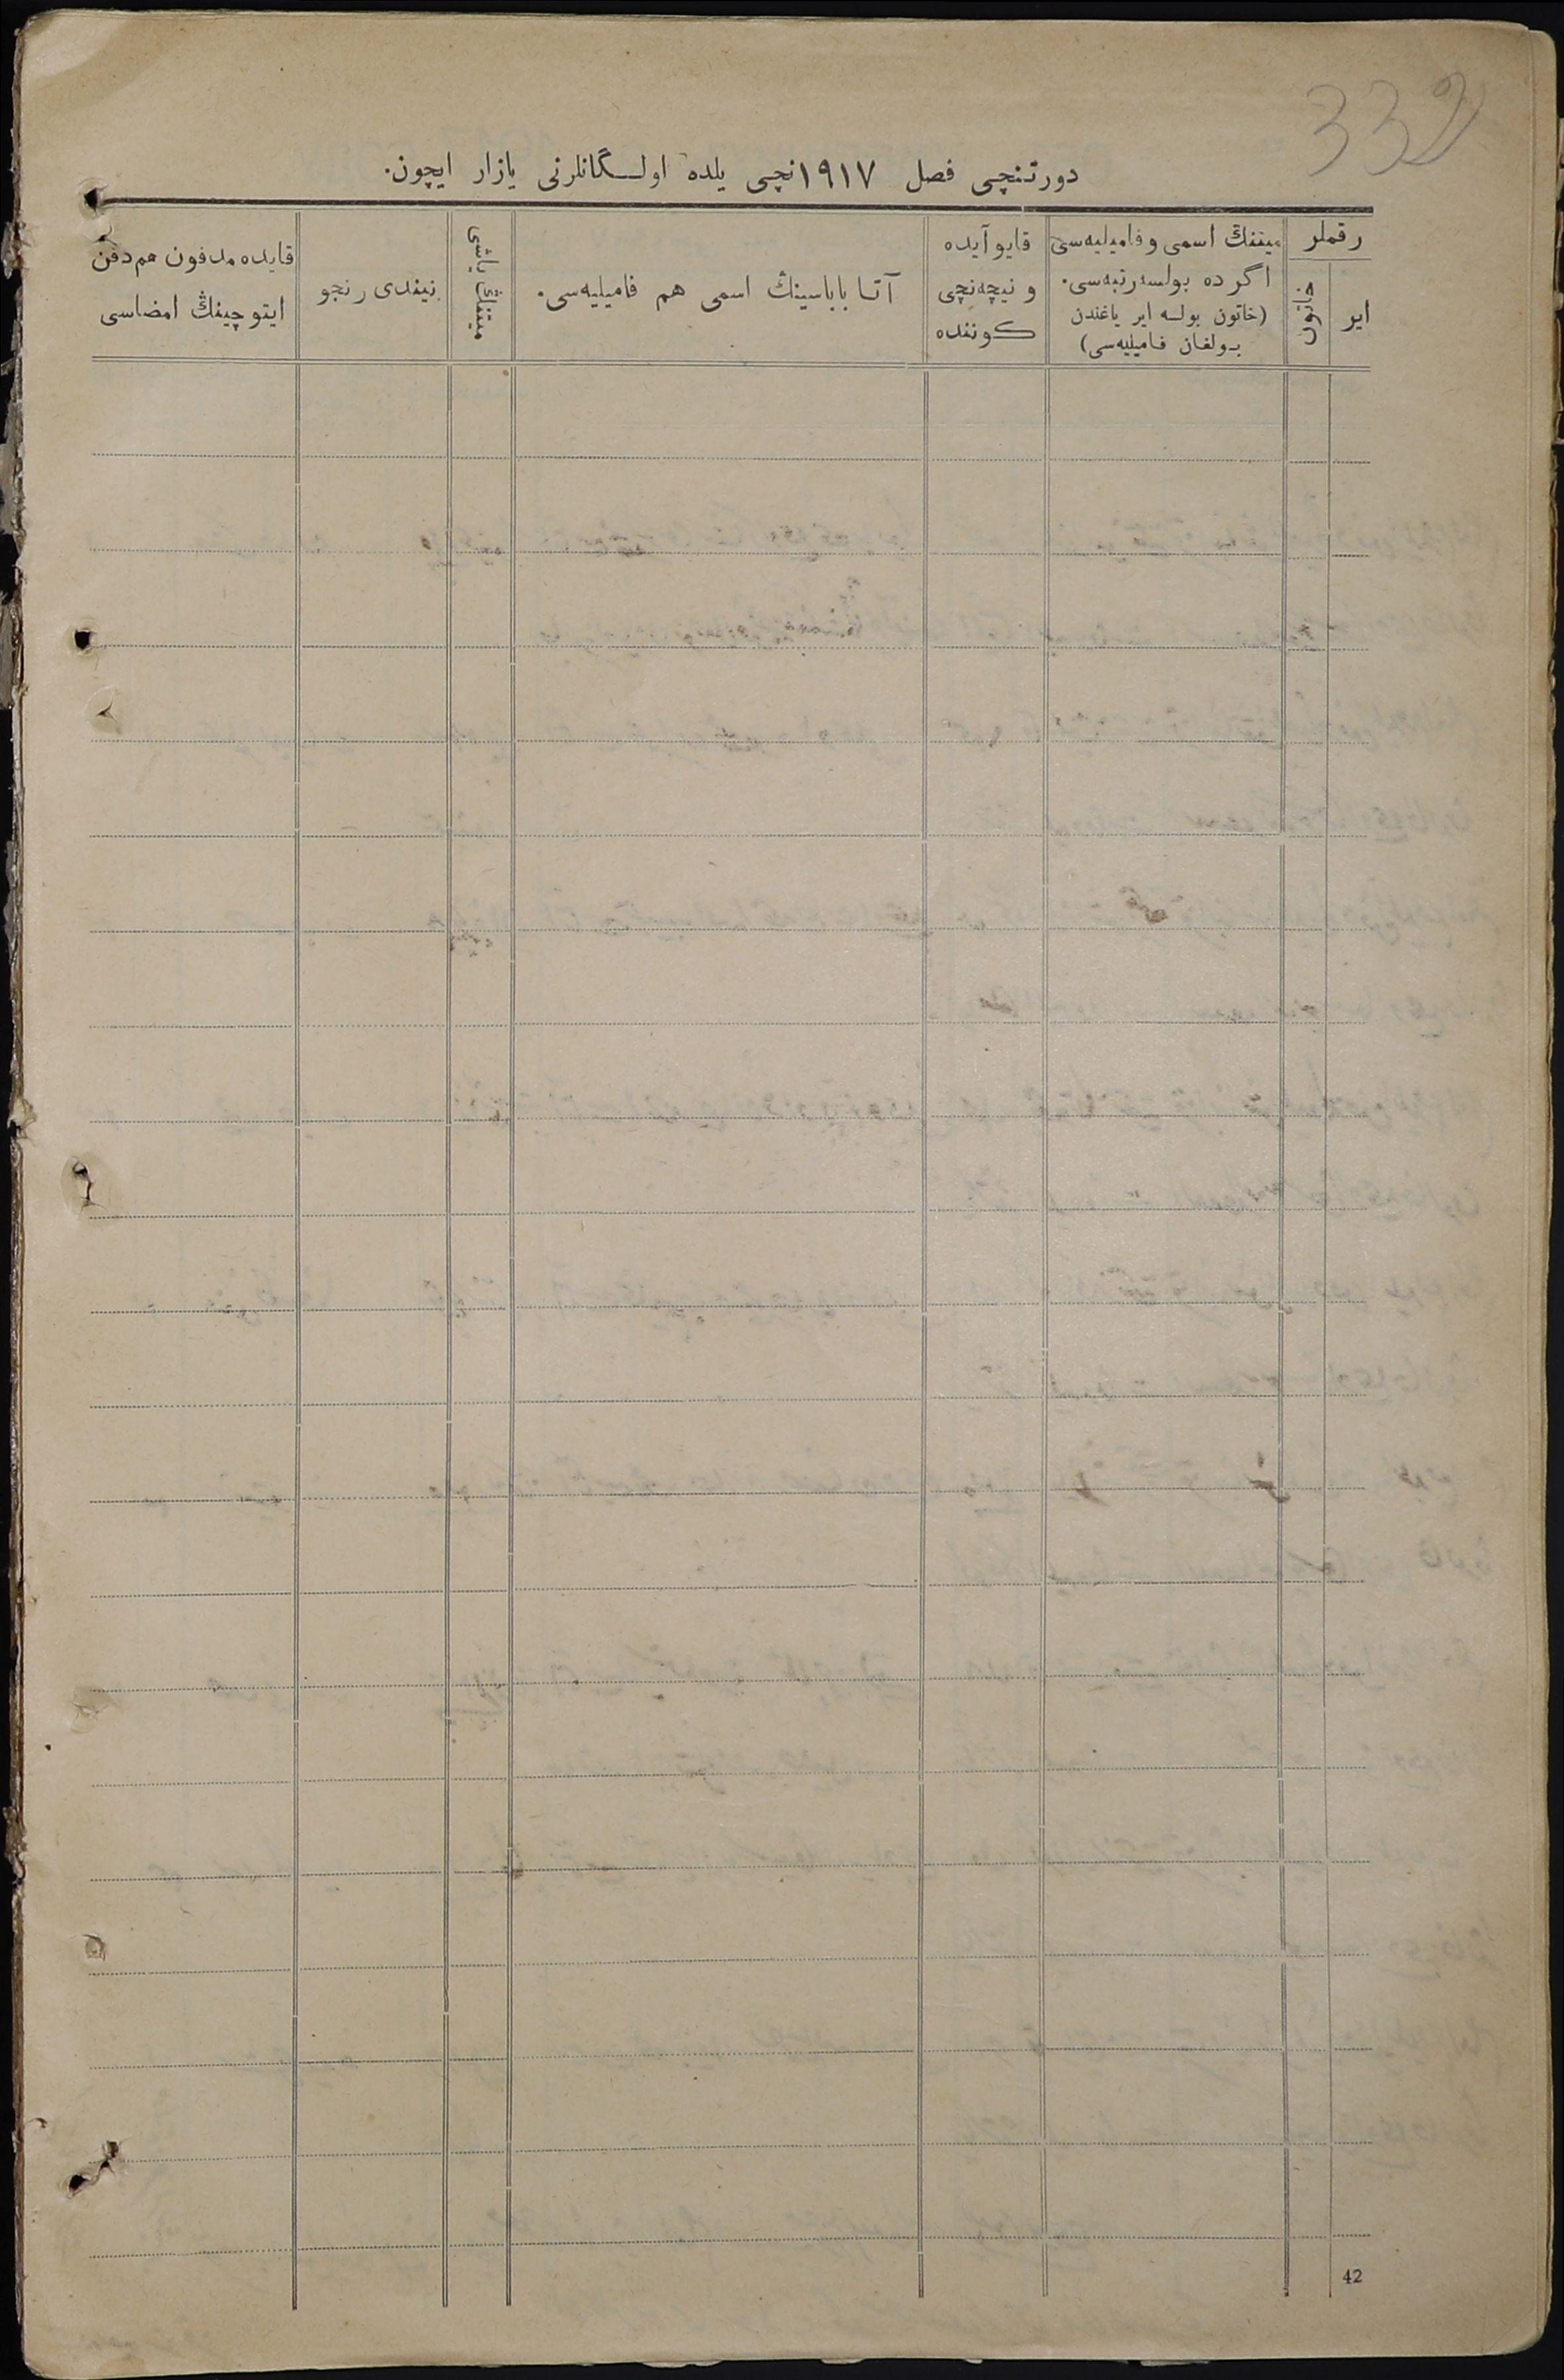 332
دورتنچی فصل ١٩١٧نچی یلده اولـگانلرنی یازار ایچون.
رقملر
ایر
خاتون
میتنڭ اسمی و فامیلیه‌سی
اگرده بولسه رتبه‌سی.
(خاتون بولسه ایر یاغندن
بولغان فامیلیه‌سی)
قایو آیده
و نیچه‌نچی
کوننده
آتا باباسینڭ اسمی هم فامیلیه‌سی.
میتنڭ یاشی
نیندی رنجو
قایده مدفون هم دفن
ایتوچینڭ امضاسی
42